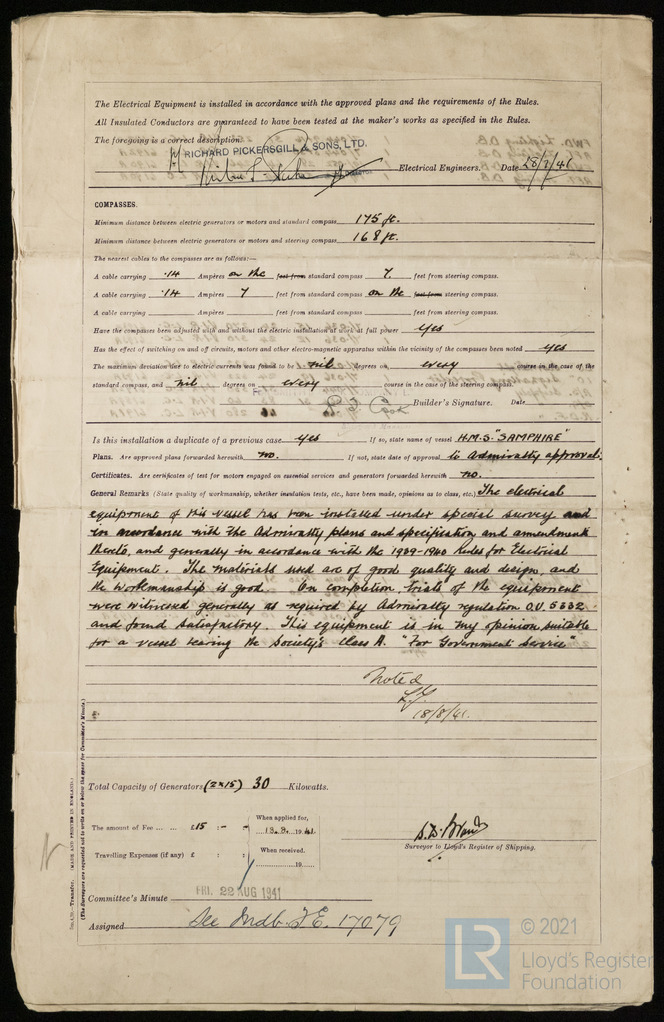 The Electrical Equipment is installed in accordance with the approved plans and the requirements of the Rules.
All Insulated Conductors are guaranteed to have been tested at the maker's works as specified in the Rules.
The foregoing is a correct description.
RICHARD PICKERSGILL & SONS, LTD.
Electrical Engineers. Date
COMPASSES.
Minimum distance between electric generators or motors and standard compass 175 ft.
Minimum distance between electric generators or motors and steering compass 168 ft.
The nearest cables to the compasses are as follows:—
A cable carrying .14 Ampères on the feet from standard compass 7 feet from steering compass.
A cable carrying .14 Ampères 7 feet from standard compass on the feet from steering compass.
A cable carrying Ampères feet from standard compass feet from steering compass.
Have the compasses been adjusted with and without the electric installation at work at full power yes
Has the effect of switching on and off circuits, motors and other electro-magnetic apparatus within the vicinity of the compasses been noted yes
The maximum deviation due to electric currents was found to be nil degrees on every course in the case of the
standard compass, and nil degrees on every course in the case of the steering compass.
Builder's Signature. Date
Is this installation a duplicate of a previous case yes If so, state name of vessel H.M.S. "SAMPHIRE"
Plans. Are approved plans forwarded herewith no. If not, state date of approval to Admiralty approval.
Certificates. Are certificates of test for motors engaged on essential services and generators forwarded herewith no.
General Remarks (State quality of workmanship, whether insulation tests, etc., have been made, opinions as to class, etc.) The electrical
equipment of this vessel has been installed under special survey and
in accordance with the Admiralty plans and specification and amendments
thereto, and generally in accordance with the 1939-1940 Rules for Electrical
Equipment. The materials used are of good quality and design, and
the workmanship is good. On completion, trials of the equipment
were witnessed generally as required by Admiralty regulation O.U. 5332
and found satisfactory. This equipment is in my opinion suitable
for a vessel bearing the Society's Class A. "For Government Service"
Noted
18/8/41.
Total Capacity of Generators (2x15) 30 Kilowatts.
The amount of Fee ... ... £15 : - : - When applied for, 13.8.1941
Travelling Expenses (if any) £ : : When received, 19
Surveyor to Lloyd's Register of Shipping.
Committee's Minute FRI. 22 AUG 1941
Assigned See F.E. 17079
(MADE AND PRINTED IN ENGLAND.)
(The Surveyors are requested not to write on or below the space for Committee's Minute.)
LR
© 2021
Lloyd's Register
Foundation